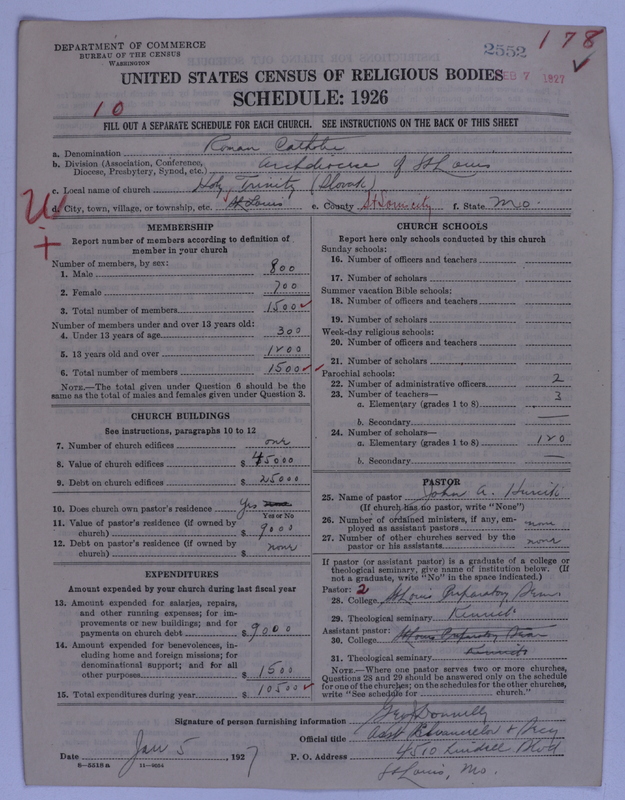 DEPARTMENT OF COMMERCE
BUREAU OF THE CENSUS
WASHINGTON
2552
178
UNITED STATES CENSUS OF RELIGIOUS BODIES
FEB 7 1927
SCHEDULE: 1926
10
FILL OUT A SEPARATE SCHEDULE FOR EACH CHURCH. SEE INSTRUCTIONS ON THE BACK OF THIS SHEET
a. Denomination Roman Catholic
b. Division (Association, Conference, Diocese, Presbytery, Synod, etc.) Archdiocese of St Louis
c. Local name of church Holy Trinity (Slovak)
d. City, town, village, or township, etc. St Louis e. County St Louis city f. State Mo.
MEMBERSHIP
Report number of members according to definition of
member in your church
Number of members, by sex:
1. Male 800
2. Female 700
3. Total number of members 1500
Number of members under and over 13 years old:
4. Under 13 years of age 300
5. 13 years old and over 1200
6. Total number of members 1500
NOTE.—The total given under Question 6 should be the
same as the total of males and females given under Question 3.
CHURCH BUILDINGS
See instructions, paragraphs 10 to 12
7. Number of church edifices one
8. Value of church edifices $ 45000
9. Debt on church edifices $ 25000
10. Does church own pastor's residence? Yes
Yes or No
11. Value of pastor's residence (if owned by
church) $ 9000
12. Debt on pastor's residence (if owned by
church) $ none
EXPENDITURES
Amount expended by your church during last fiscal year
13. Amount expended for salaries, repairs,
and other running expenses; for im-
provements or new buildings; and for
payments on church debt $ 9000
14. Amount expended for benevolences, in-
cluding home and foreign missions; for
denominational support; and for all
other purposes $ 1500
15. Total expenditures during year $ 10500
CHURCH SCHOOLS
Report here only schools conducted by this church
Sunday schools:
16. Number of officers and teachers
17. Number of scholars
Summer vacation Bible schools:
18. Number of officers and teachers
19. Number of scholars
Week-day religious schools:
20. Number of officers and teachers
21. Number of scholars
Parochial schools:
22. Number of administrative officers 2
23. Number of teachers—
a. Elementary (grades 1 to 8) 3
b. Secondary —
24. Number of scholars—
a. Elementary (grades 1 to 8) 120
b. Secondary —
PASTOR
25. Name of pastor John A.
(If church has no pastor, write "None")
26. Number of ordained ministers, if any, em-
ployed as assistant pastors none
27. Number of other churches served by the
pastor or his assistants none
If pastor (or assistant pastor) is a graduate of a college or
theological seminary, give name of institution below. (If
not a graduate, write "No" in the space indicated.)
Pastor: 2
28. College St Louis Preparatory Sem.
29. Theological seminary Kenrick
Assistant pastor:
30. College St Louis Preparatory Sem
31. Theological seminary Kenrick
NOTE.—Where one pastor serves two or more churches,
Questions 28 and 29 should be answered only on the schedule
for one of the churches; on the schedules for the other churches,
write "See schedule for church."
Signature of person furnishing information Geo J Donnelly
Official title Asst Chancelor & Secy
Date Jan 5, 1927 P. O. Address 4510 Lindell Blvd
8-5518a 11-9054
St Louis, Mo.